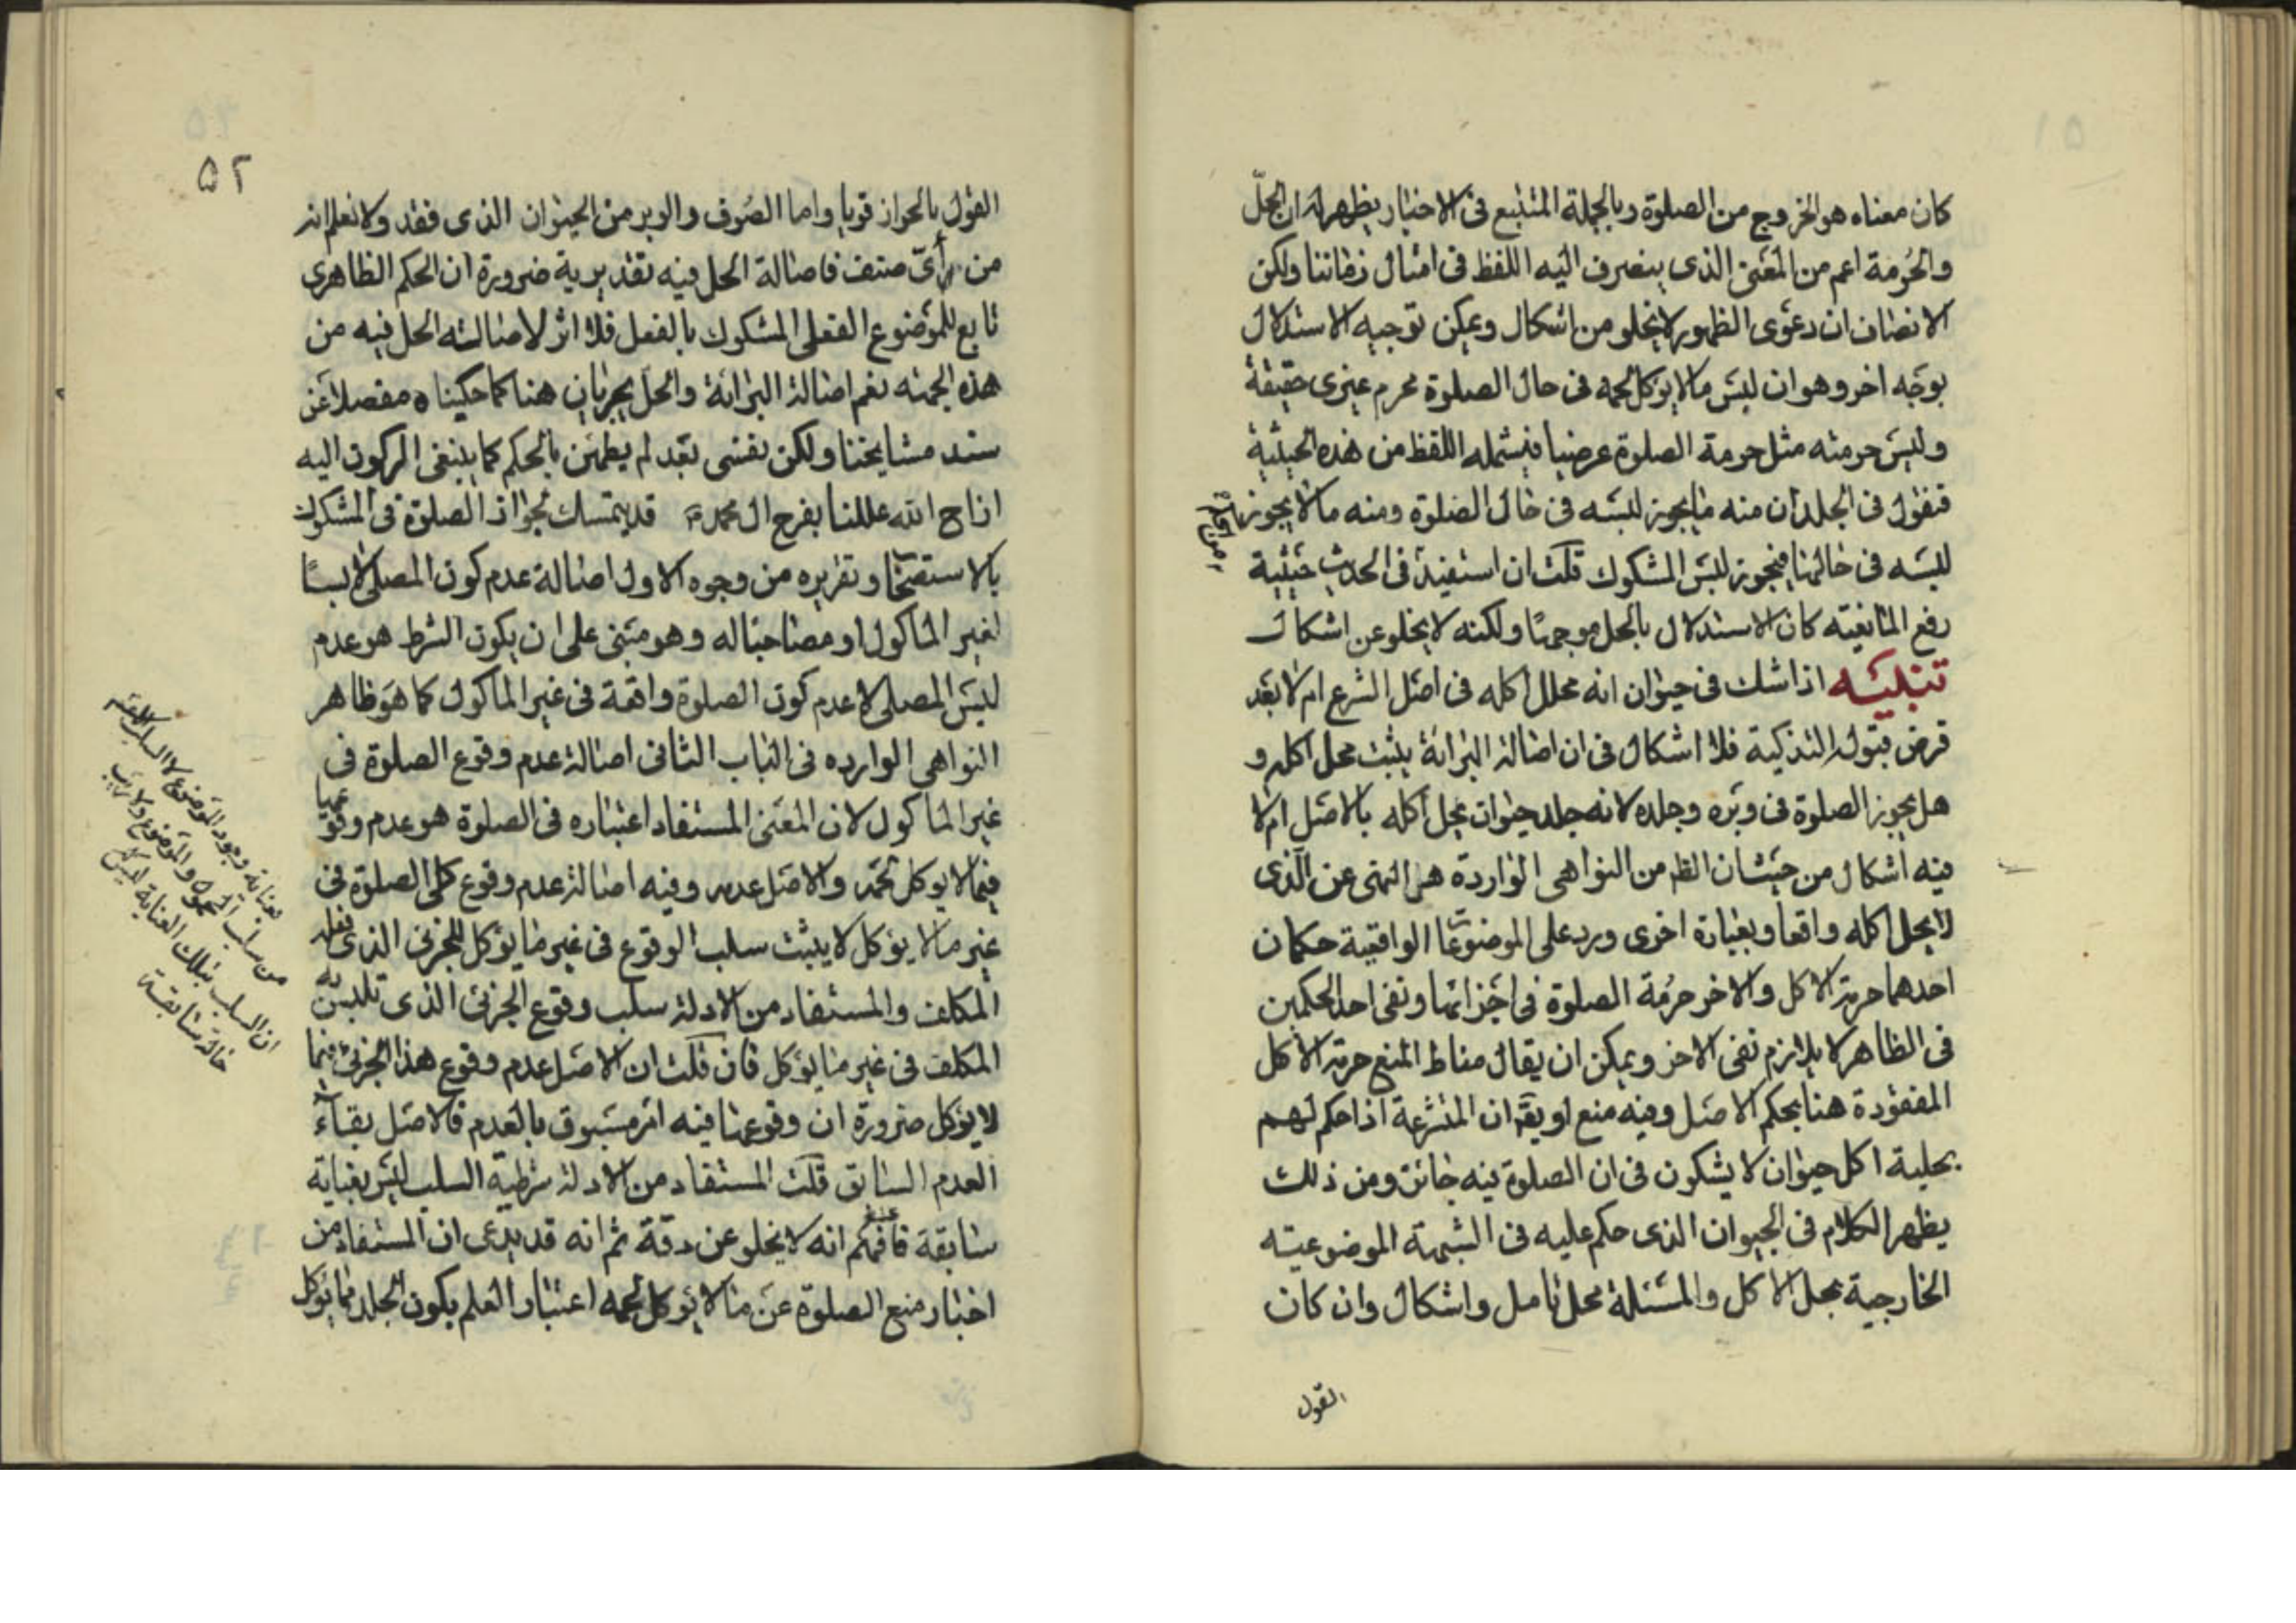 كان معناه هو الخروج من الصلوة وبالجملة المتتبع فى الاخبار يظهر له ان الحلّ
والحرمة اعم من المعنى الذى ينصرف اليه اللفظ فى امثال زماننا ولكن
الانصاف ان دعوى الظهور لا يخلو من اشكال ويمكن توجيه الاستدلال
بوجه اخر وهو ان لبس ما لا يؤكل لحمه فى حال الصلوة محرم غيرى حقيقة
وليس حرمته مثل حرمة الصلوة عرضيا فيشمله اللفظ من هذه الحيثية
فنقول فى الجلد ان منه ما يجوز لبسه فى حال الصلوة ومنه ما لا يجوز
لبسه فى حالها فيجوز لبس المشكوك قلت ان استفيد فى الحديث حيثية
رفع المانعيته كان الاستدلال بالحل موجها ولكنه لا يخلو عن اشكال
تنبيه اذا شك فى حيوان انه محلل اكله فى اصل الشرع ام لا بعد
فرض قبوله التذكية فلا اشكال فى ان اصالة البرائة يثبت محل اكله و
هل يجوز الصلوة فى وبره وجلده لانه جلد حيوان يحل اكله بالاصل ام لا
فيه اشكال من حيث ان الظم من النواهى الواردة هى النهى عن الذى
لا يحل اكله واقعا وبعبارة اخرى ورد على الموضوعات الواقعية حكمان
احدهما حرمة الاكل والاخر حرمة الصلوة فى اجزائها ونفى احد الحكمين
فى الظاهر لا يلازم نفى الاخر ويمكن ان يقال مناط المنع حرمة الاكل
المفقودة هنا بحكم الاصل وفيه منع او يقّ ان المتشرعة اذا حكم لهم
بحلية اكل حيوان لا يشكون فى ان الصلوة فيه جائز ومن ذلك
يظهر الكلام فى الحيوان الذى حكم عليه فى الشبهة الموضوعيته
الخارجية بحل الاكل والمسئلة محل تامل واشكال وان كان
القول
۵۲
القول بالجواز قويا واما الصوف والوبر من الحيوان الذى فقد ولا نعلم انه
من اىّ صنف فاصالة الحل فيه تقديرية ضرورة ان الحكم الظاهرى
تابع للموضوع الفعلى المشكوك بالفعل فلا اثر لاصالته الحل فيه من
هذه الجهته نعم اصالة البرائة والحل يجريان هنا كما حكيناه مفصلا عن
سند مشايخنا ولكن نفسى بعد لم يطمئن بالحكم كما ينبغى الركون اليه
ازاح الله عللنا بفرج ال محمد قد يتمسك لجواز الصلوة فى المشكوك
بالاستصحاب وتقريره من وجوه الاول اصالة عدم كون المصلى لابسًا
لغير الماكول او مصاحبا له وهو مبنى على ان يكون الشرط هو عدم
لبس المصلى لا عدم كون الصلوة واقعة فى غير الماكول كما هو ظاهر
النواهى الوارده فى الباب الثانى اصالة عدم وقوع الصلوة فى
غير الماكول لان المعنى المستفاد اعتباره فى الصلوة هو عدم وقوعها
فيما لا يوكل لحمه والاصل عدمه وفيه اصالة عدم وقوع كلى الصلوة فى
غير ما لا يؤكل لا يثبت سلب الوقوع فى غير ما يؤكل للجزئى الذى فعله
المكلف والمستفاد من الادلة سلب وقوع الجزئى الذى تلبس به
المكلف فى غير ما يؤكل فان قلت ان الاصل عدم وقوع هذا الجزئى فيما
لا يؤكل ضرورة ان وقوعها فيه امر مسبوق بالعدم فالاصل بقاء
العدم السابق قلت المستفاد من الادلة شرطية السلب ليس بغيابة
سابقة فافهم انه لا يخلو عن دقة ثم انه قد يدعى ان المستفاد من
اخبار منع الصلوة عن ما لا يؤكل لحمه اعتبار العلم بكون الجلد مما يؤكل
بعناية وجود الموضوع لا السلب الاعم
من سلب المحمول والموضوع ولا ريب
ان السلب بتلك العناية ليس
حالة سابقة